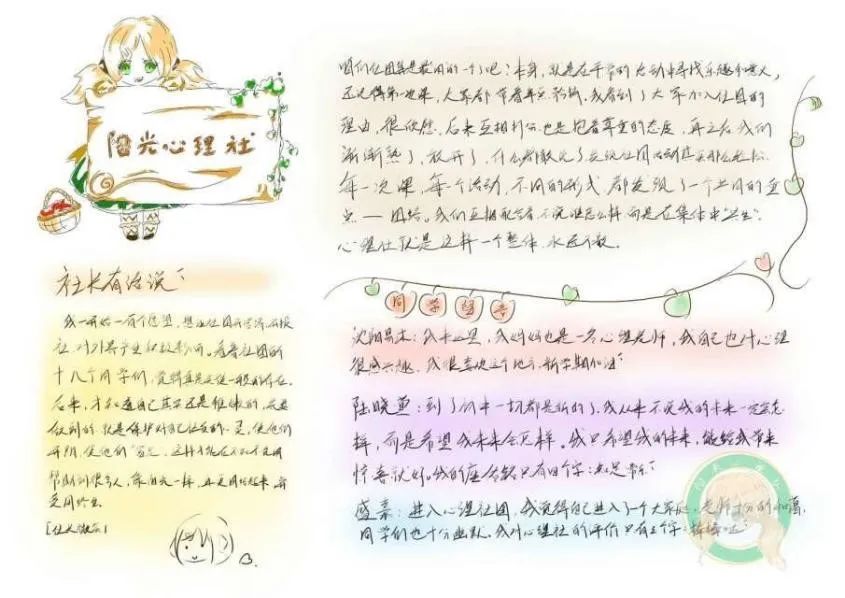 阳光心理社
社长有话说：
我一开始一有个愿望，
社，对外界产生积极影响。看着社团的
十八个同学们，觉得真是
后来，才知道自己其实还是
做到的就是保护好自己社员的心灵，使他们
开朗，使他们
帮助到很多人，像阳光一样，
受用终生。
咱们社团算是最用的一个了吧？本身，就是在平常的活动中寻找乐趣和意义，
还记得第一次来，大家都带着，我看到了大家加入社团的
理由，很欣慰，后来互相打分也是抱着尊重的态度，再之后我们
渐渐熟了，放开了，什么都敢说了发现社团活动真是那么轻松
每一次课，每个活动，不同的形式，都发现了一个共同的重
点——团结。我们互相配合着不，而是在集体中“共生”。
心理社就是这样一个整体，永远不散。
同学留言
：我来这里，我妈妈也是一名心理老师，我自己也对心理
很感兴趣，我很喜欢这个地方，新学期加油！
陆晓：到了初中一切都是新的了，我从来不说我的未来一定会怎
样，而是希望我未来会怎样。我只希望我的未来，能给我带来
惊喜就好。我的座右铭只有四个字：
盛嘉：进入心理社团，我觉得自己进入了一个大家庭，老师十分的和蔼，
同学们也十分幽默。我对心理社的评价只有三个字：棒棒哒！